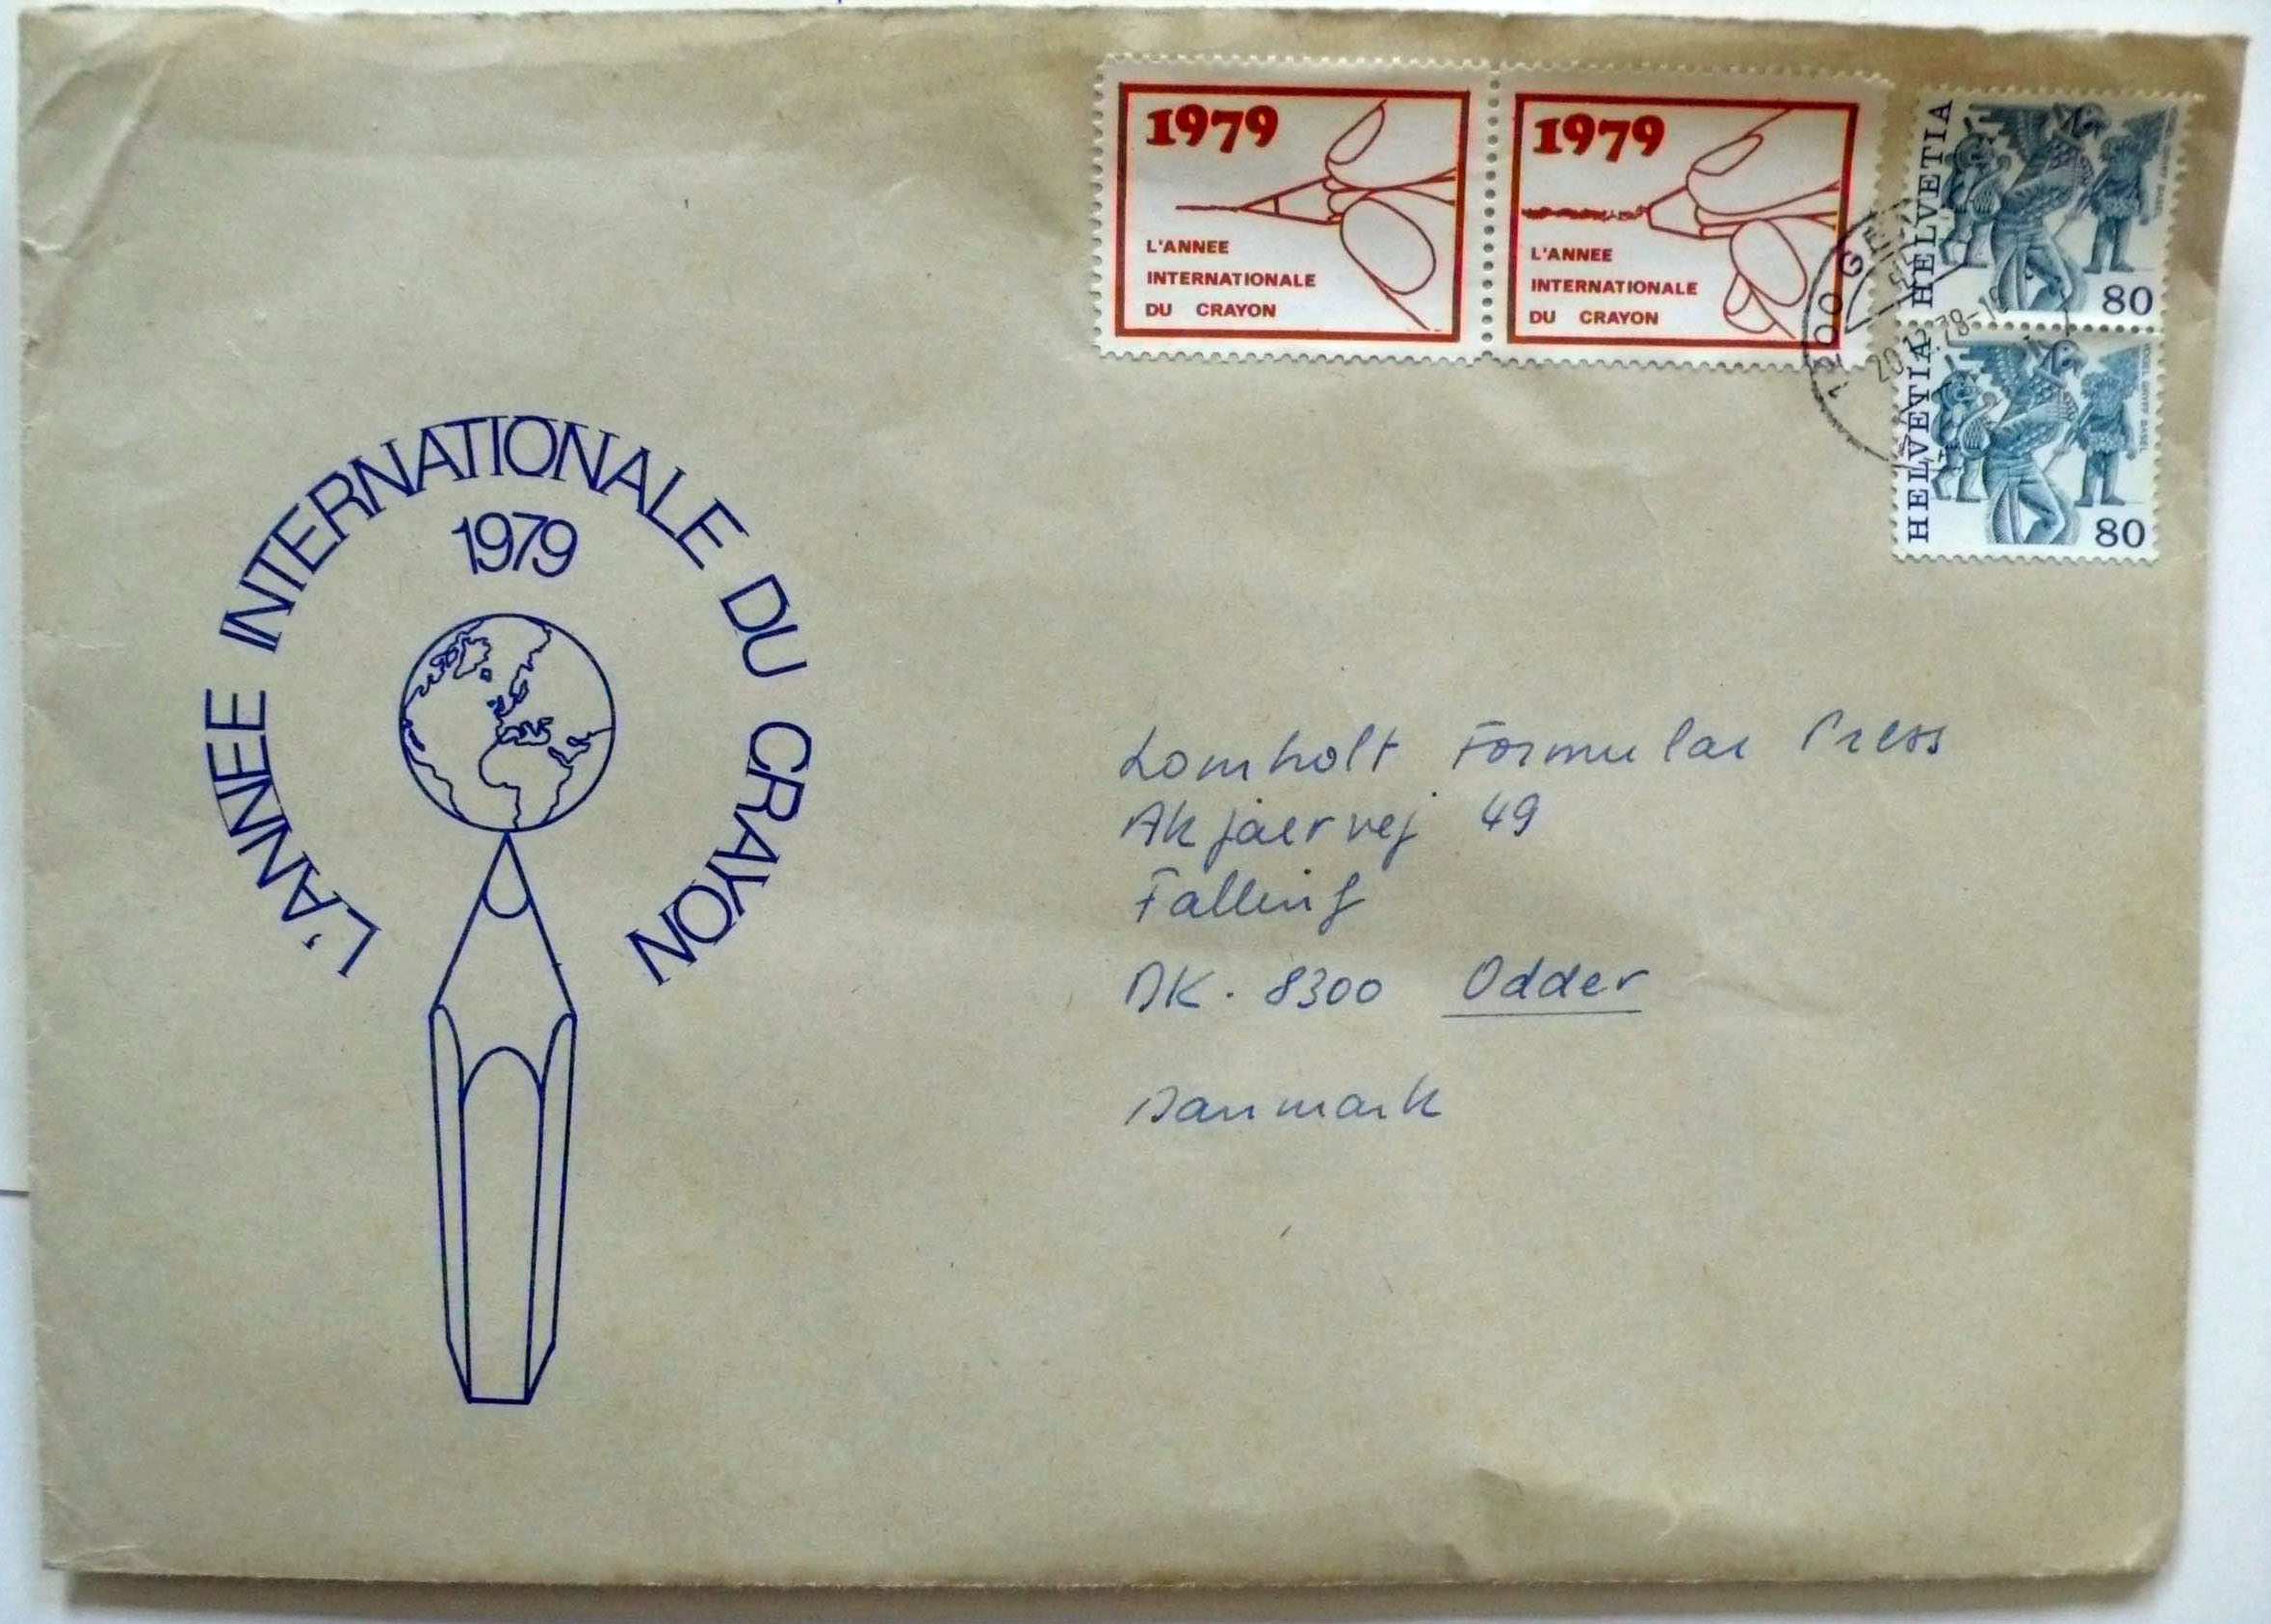 1979
L'ANNEE
INTERNATIONALE
DU CRAYON
1979
L'ANNEE
INTERNATIONALE
DU CRAYON
HELVETIA
80
HELVETIA
VOGEL GRYFF BASEL
80
1200
L'ANNEE INTERNATIONALE DU CRAYON
1979
Lomholt Formular Press
Akjaervej 49
Falling
DK. 8300 Odder
Danmark